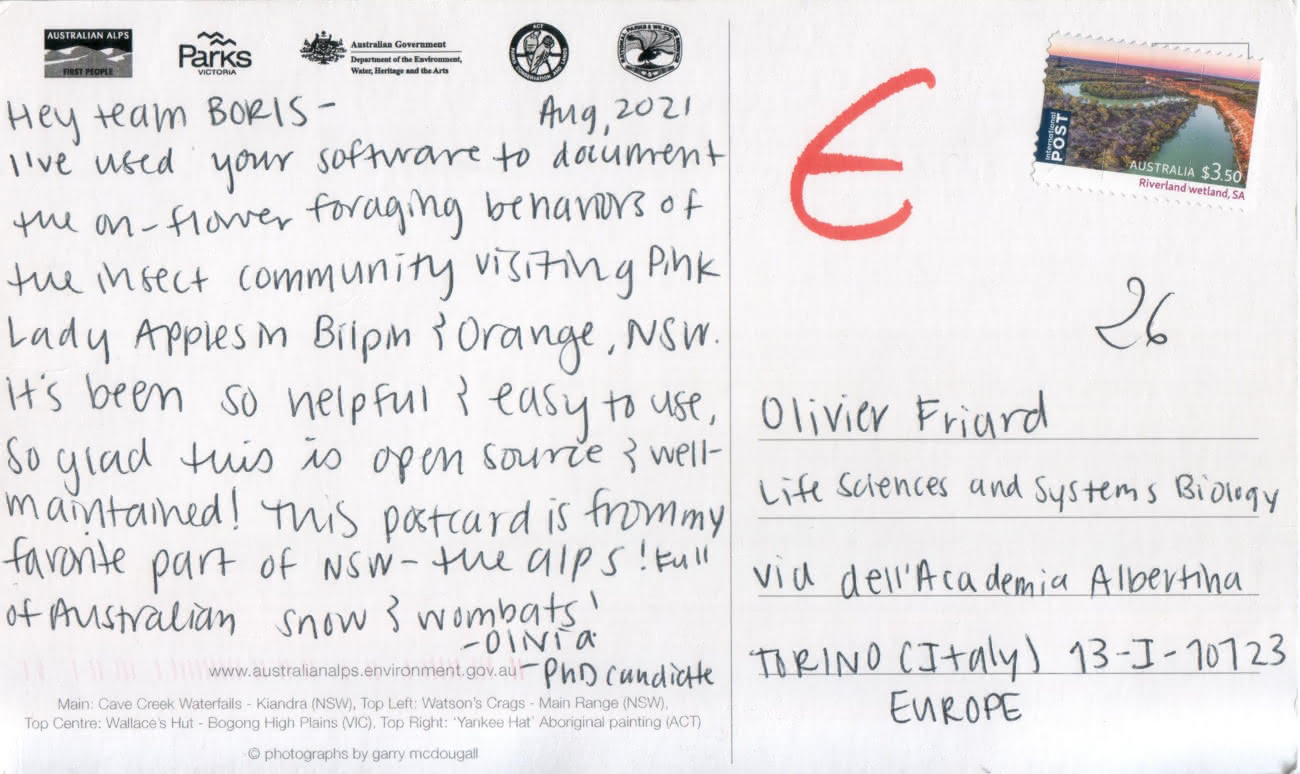 AUSTRALIAN ALPS
FIRST PEOPLE
Parks
VICTORIA
Australian Government
Department of the Environment,
Water, Heritage and the Arts
ACT
Hey team BORIS - Aug, 2021
I've used your software to document
the on-flower foraging behaviors of
the insect community visiting Pink
Lady Apples in Bilpin & Orange, NSW.
It's been so helpful & easy to use,
So glad this is open source & well-
maintained! This postcard is from my
favorite part of NSW - the alps! Full
of Australian snow & wombats!
- Olivia
- PhD candidate
www.australianalps.environment.gov.au
Main: Cave Creek Waterfalls - Kiandra (NSW), Top Left: Watson's Crags - Main Range (NSW),
Top Centre: Wallace's Hut - Bogong High Plains (VIC), Top Right: 'Yankee Hat' Aboriginal painting (ACT)
© photographs by garry mcdougall
E
International
POST
AUSTRALIA $3.50
Riverland wetland, SA
26
Olivier Friard
Life Sciences and Systems Biology
via dell'Academia Albertina
TORINO (Italy) 13-I-10123
EUROPE